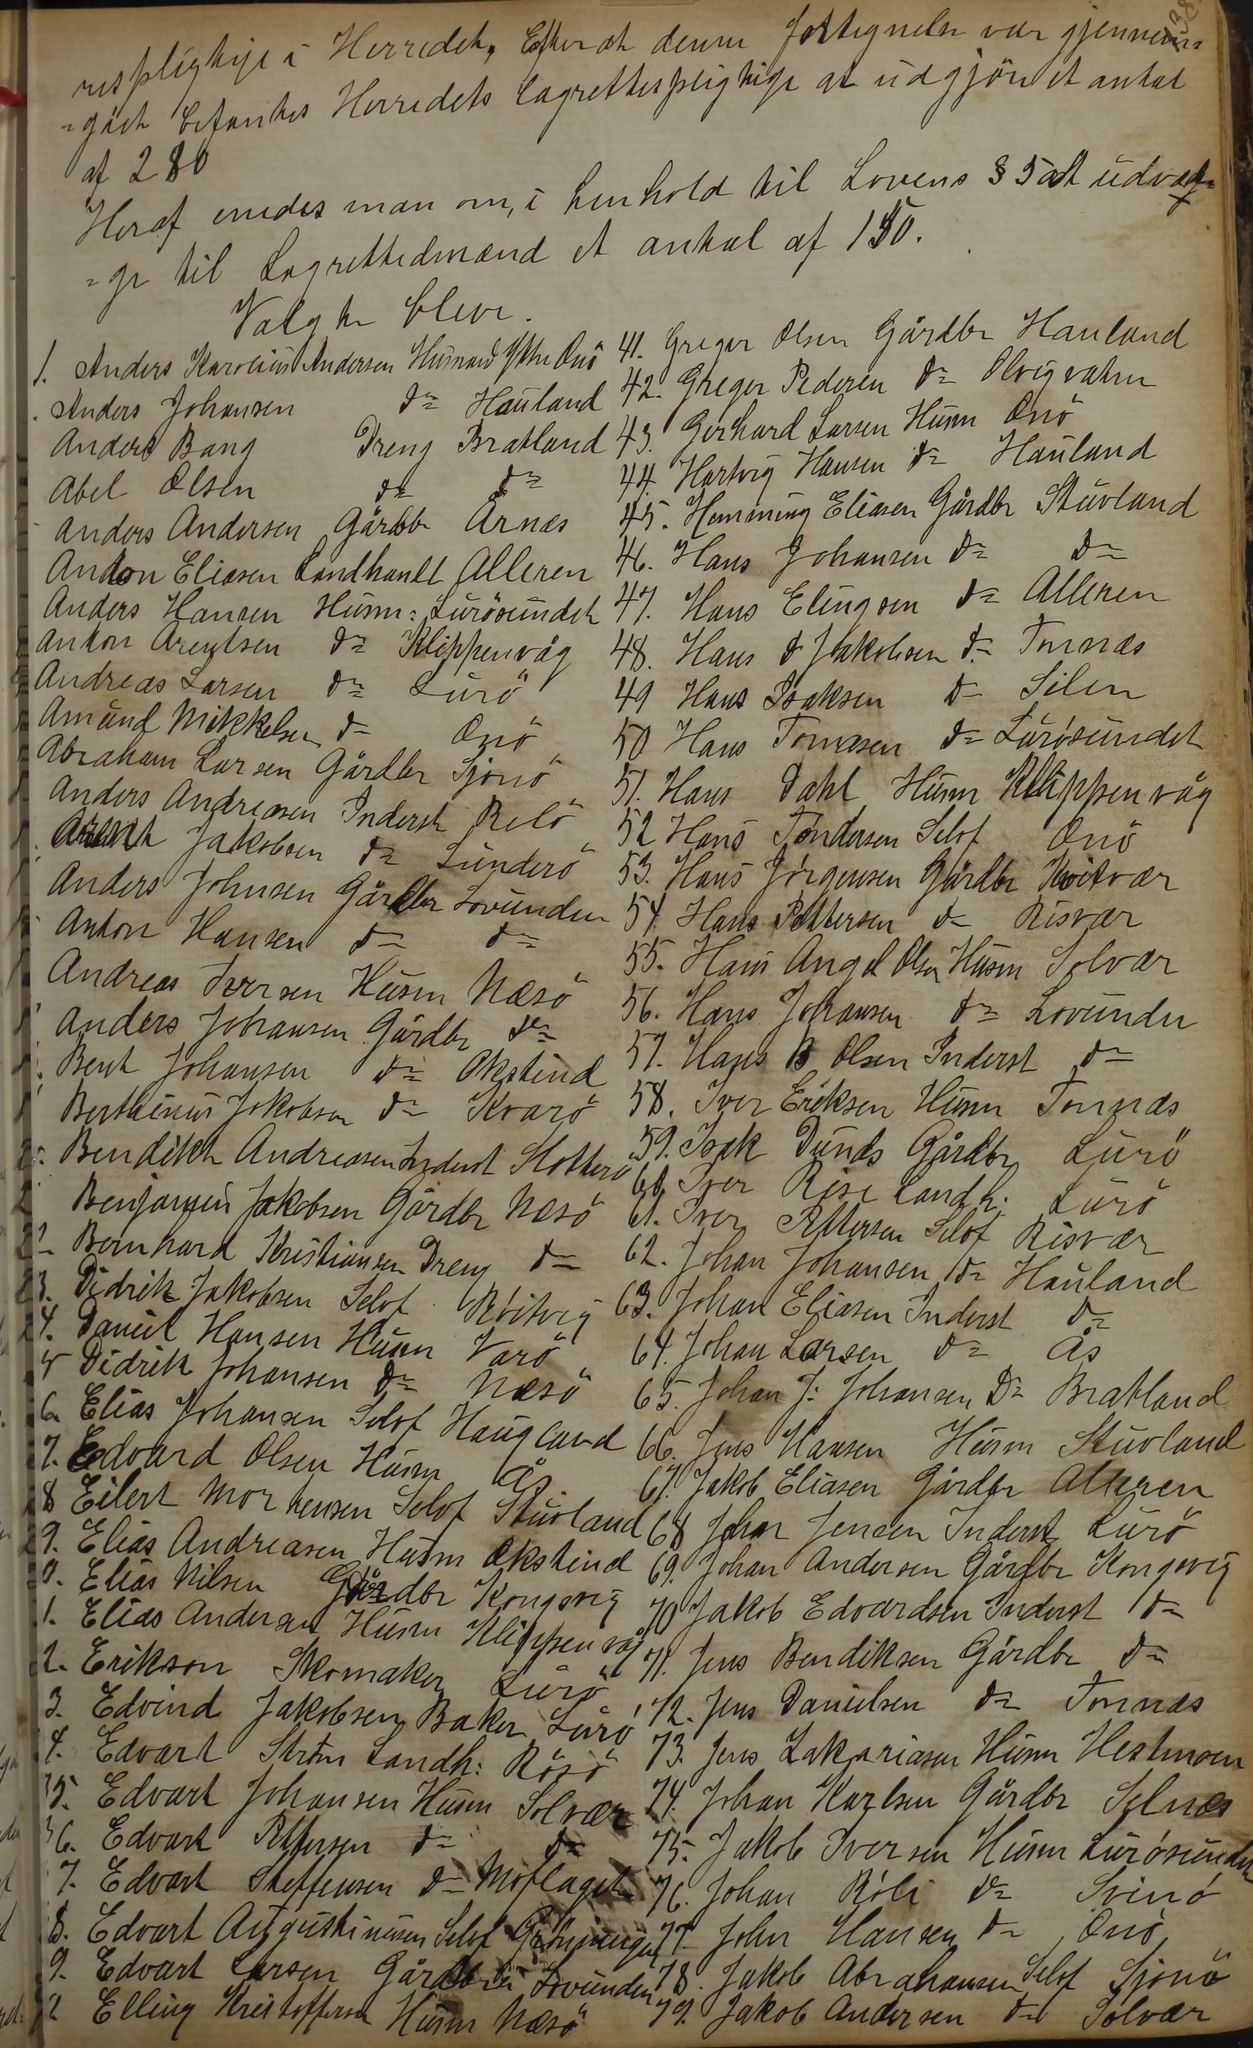 respligtige i Herredet. Efter at denne fortegnelse var gjennem=
=gåt befantes Herredets Lagrettespligtige at udgjöre et antal
af 280
Heraf enedes man om, i henhold til Lovens § 5 at udvæl=
=ge til Lagrettesmænd et antal af 150.
Valgte bleve.
1. Anders Karolius Andersen Husmand Ytre Onö
Anders Johansen d= Hauland
Anders Bang Dreng Bratland
Abel Olsen d= d=
Anders Andersen Gårdbr Årnes
Anton Eliasen Landhandl Alleren
Anders Hansen Husm: Luröisundet
Anton Arentsen d= Klippenvåg
Andreas Larsen d= Lurö
Amund Mikkelsen d= Onö
Abraham Larsen Gårdbr Sjonö
Anders Andreasen Inderst Relö
Arent Jakobsen d= Sunderö
Anders Johnsen Gårdbr Lovunden
Anton Hansen d= d=
Andreas Iversen Husm Næsö
Anders Johansen Gårdbr d=
Bent Johansen d= Okstind
Berthinus Jakobsen d= Kvarö
Bendikt Andreasen Inderst Slotterö
Benjamin Jakobsen Gårdbr Næsö
Bernhard Kristiansen Dreng d=
3. Didrik Jakobsen Selof Kvitvig
4. Daniel Hansen Husm Varö
5 Didrik Johansen d= Næsö
6. Elias Johansen Selof Haugland
7. Edvard Olsen Husm Ås
8 Eilert Mortensen Selof Stuvland
9. Elias Andreasen Husm Okstind
0. Elias Nilsen Gårdbr Kongsvig
1. Elias Andersen Husm Klippenvåg
2. Erikson Skomaker Lurö
3. Edvind Jakobsen Baker Lurö
4. Edvart Ström Landh: Rösö
35. Edvart Johansen Husm Solvær
36. Edvart Pettersen d= d=
7. Edvart Steffensen d= Moflaget
8. Edvart Augustinusen Selof
9. Edvart Larsen Gårdbr Lovunden
Elling Kristoffersen Husm Næsö
41. Greger Olsen Gårdbr Hauland
42. Greger Pedersen d= Olvigvatnn
43. Gerhard Larsen Husm Onö
44. Hartvig Hansen d= Hauland
45. Henning Eliasen Gårdbr Stuvland
46. Hans Johansen d= d=
47. Hans Elingsen d= Alleren
48. Hans d Jakobsen d= Tonnæs
49 Hans Isaksen d= Silen
50 Hans Tomasen d= Lurösundet
51. Hans Dahl Husm Klippenvåg
52 Hans Töndersen Selof Onö
53. Hans Jörgensen Gårdbr Kvitvær
54. Hans Pettersen d= Risvær
55. Hans Angel Olsen Husm Solvær
56. Hans Johansen d= Lovunden
57. Hans B Olsen Inderst d=
58. Iver Eriksen Husm Tonnæs
59. Isak Dunds Gårdbr Lurö
60 Iver Rise Landh: Lurö
61. Iver Pettersen Selof Risvær
62. Johan Johansen d= Hauland
63. Johan Eliasen Inderst d=
64. Johan Larsen d= Ås
65. Johan J: Johansen D= Bratland
66. Jens Hansen Husm Stuvland
67. Jakob Eliasen Gårdbr Alleren
68 Johan Jensen Inderst Lurö
69. Johan Andersen Gårdbr Kongsvig
70 Jakob Edvardsen Inderst d=
71. Jens Bendiksen Gårdbr d=
72. Jens Danielsen d= Tonnæs
73. Jens Zakariasen Husm Hestmoen
74. Johan Karlsen Gårdbr Selnæs
75. Jakob Iversen Husm Lurösundet
76. Johan Röli d= Svinö
77. John Hansen d= Onö
78. Jakob Abrahamsen Selof Sjonö
79. Jakob Andersen d= Solvær